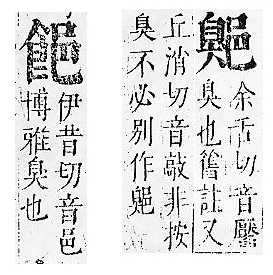 余舌切音靨
臭也舊註又
丘消切音敲非按
臭不必别作
伊昔切音邑
博雅臭也